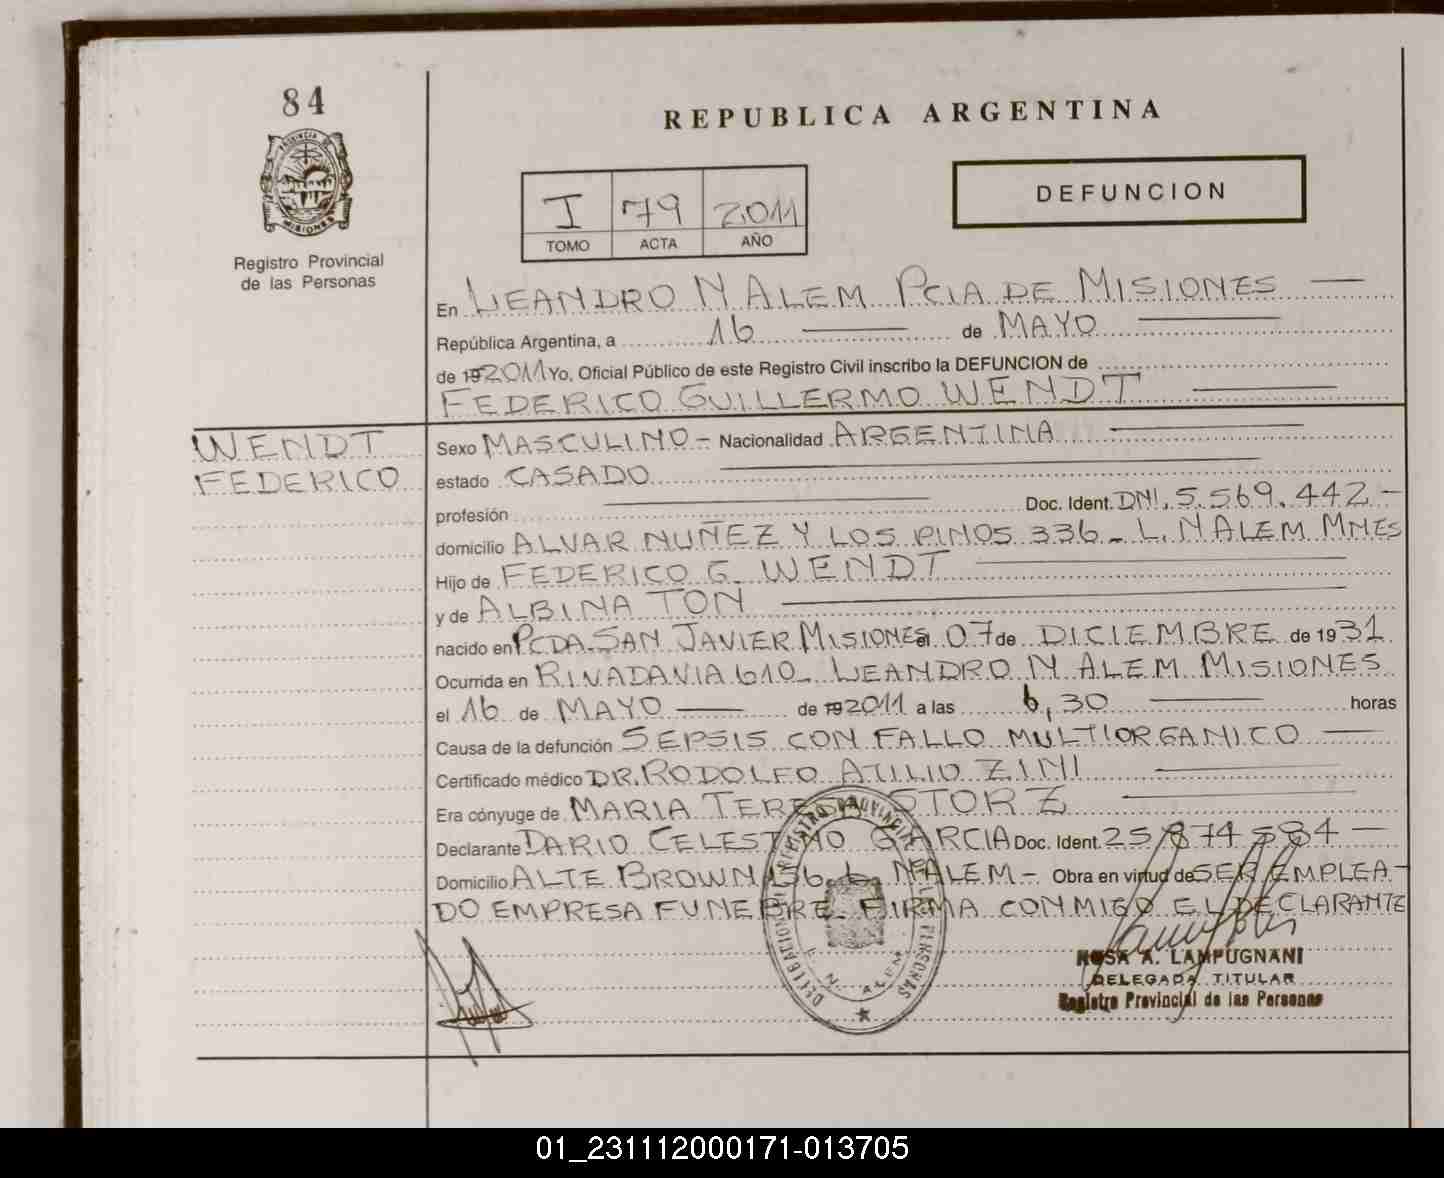 84
PROVINCIA DE
MISIONES
Registro Provincial
de las Personas
REPUBLICA ARGENTINA
I 79 2011
TOMO ACTA AÑO
DEFUNCION
En LEANDRO N ALEM PCIA DE MISIONES
República Argentina, a 16 de MAYO
de 192011 Yo, Oficial Público de este Registro Civil inscribo la DEFUNCION de
FEDERICO GUILLERMO WENDT
WENDT
FEDERICO
Sexo MASCULINO - Nacionalidad ARGENTINA
estado CASADO
profesión Doc. Ident. DNI. 5.569.442 -
domicilio ALVAR NUÑEZ Y LOS PINOS 336 - L. N ALEM MNES
Hijo de FEDERICO G. WENDT
y de ALBINA TON
nacido en PCDA. SAN JAVIER MISIONES el 07 de DICIEMBRE de 1931
Ocurrida en RIVADAVIA 610 - LEANDRO N ALEM MISIONES
el 16 de MAYO de 192011 a las 6,30 horas
Causa de la defunción SEPSIS CON FALLO MULTIORGANICO
Certificado médico DR. RODOLFO ATILIO ZINI
Era cónyuge de MARIA TERESA STORZ
Declarante DARIO CELESTINO GARCIA Doc. Ident. 25.874.584 -
Domicilio ALTE BROWN L. N ALEM - Obra en virtud de SER EMPLEA-
DO EMPRESA FUNEBRE. FIRMA CONMIGO EL DECLARANTE
DELEGACION REGISTRO PROVINCIAL DE LAS PERSONAS
L. N. ALEM
ROSA A. LAMPUGNANI
DELEGADA TITULAR
Registro Provincial de las Personas
01_231112000171-013705